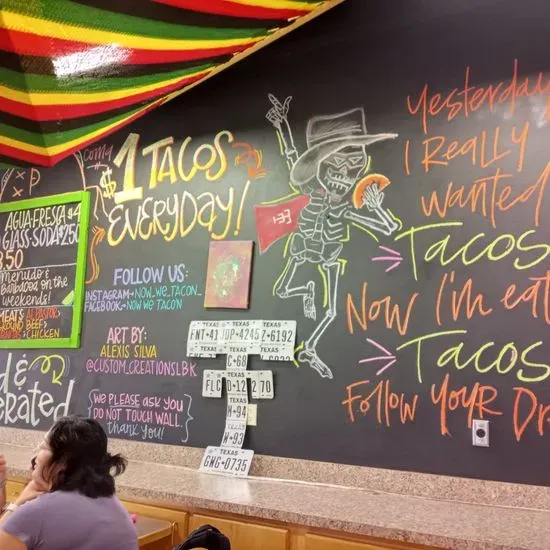 coming
$1 TACOS
EVERYDAY!
XP
AGUA FRESCA $4
GLASS SODA $2.50
3.50
menudo &
Barbacoa on the
weekends!
MEATS: AL PASTOR,
GROUND BEEF,
& CHICKEN
d &
erated
FOLLOW US:
INSTAGRAM • NOW_WE_TACON_
FACEBOOK • NOW WE TACON
ART BY:
ALEXIS SILVA
@CUSTOM.CREATIONSLBK
{We PLEASE ask you
DO NOT TOUCH WALL.
thank you!}
TEXAS
FNT•41
TEXAS
UDP•4245
TEXAS
Z•6192
C•68
TEXAS
FLC
D•12
270
TEXAS
H•94
W•93
TEXAS
GWG•0735
Yesterday
I Really
wanted
Tacos
Now I'm eat
Tacos
Follow YouR Dr